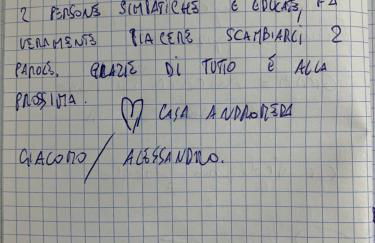 2 PERSONE SIMPATICHE E EDUCATE, FA
VERAMENTE PIACERE SCAMBIARCI 2
PAROLE. GRAZIE DI TUTTO E ALLA
PROSSIMA.
♡ CASA ANDROMEDA
GIACOMO / ALESSANDRO.